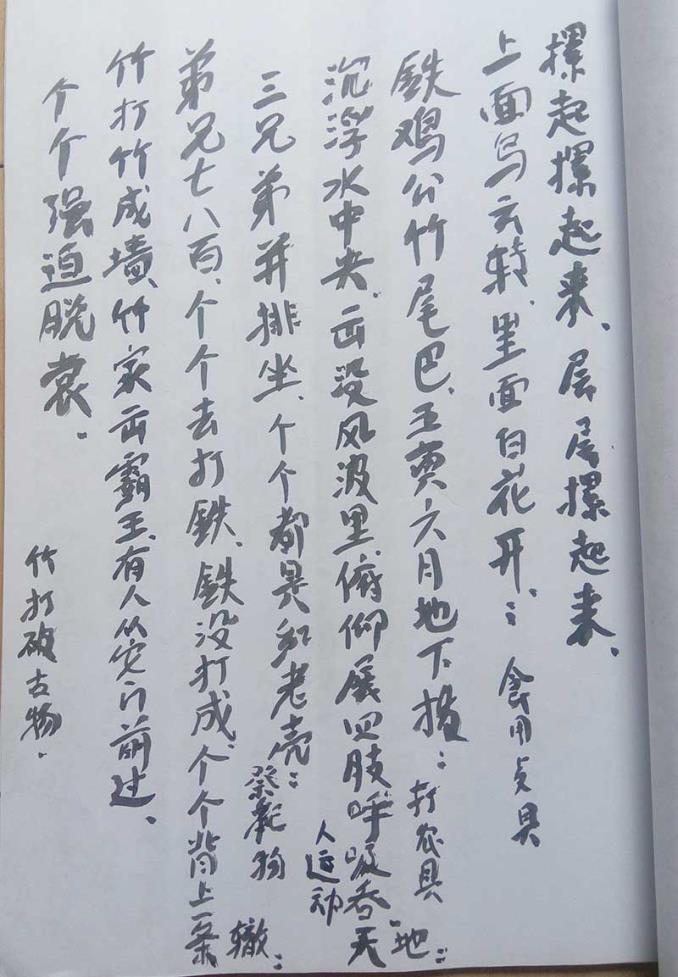 摞起摞起来、层层摞起来、
上面乌云转、里面白花开：食用炊具
铁鸡公竹尾巴、五黄六月地下揸：打农具
沉浮水中央、出没风波里、俯仰展四肢呼吸吞天地：
人运动
三兄弟并排坐、个个都是红老壳：
祭乾物
弟兄七八百、个个去打铁、铁没打成、个个背上一条
辙：
竹打竹成墙、竹家出霸王、有人从它门前过、
个个强迫脱衰．
竹打破古物．